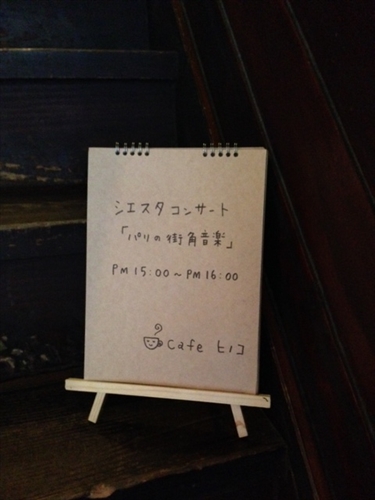 シエスタコンサート
「パリの街角音楽」
PM 15:00〜PM 16:00
Cafe ヒノコ